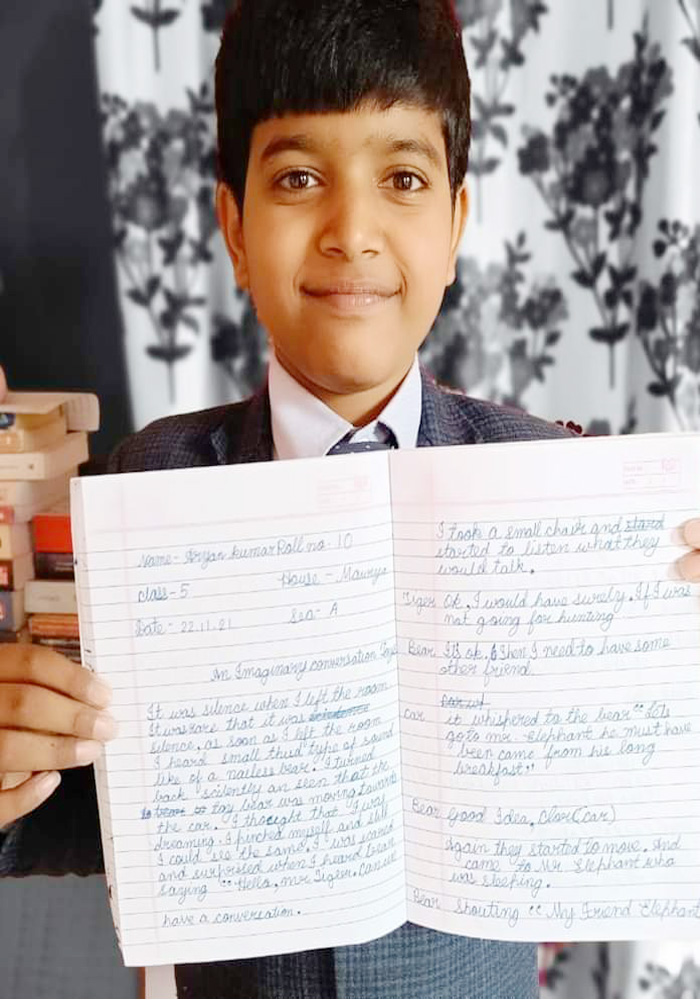 Name- Aryan kumar Roll no- 10
class-5 House - Maurya
Date- 22.11.21 Sec- A
An Imaginary conversation
It was silence when I left the room
It was rare that it was
silence, as soon as I left the room
I heard small thud type of sound
like of a nailess bear. I turned
back scilently an seen that the
toy bear was moving towards
the car. I thought that I was
dreaming. I pinched myself and still
I could see the same. I was scared
and surprised when I heard bear
saying "Hello, mr Tiger. Can we
have a conversation.
I took a small chair and
started to listen what they
would talk.
Tiger Ok, I would have surely. If I was
not going for hunting
Bear It's ok. Then I need to have some
other friend.
car it whispered to the bear "Lets
go to mr elephant he must have
been came from his long
breakfast"
Bear Good Idea, (car)
Again they started to move. And
came to Mr Elephant who
was sleeping.
Bear Shouting "My Friend Elephant